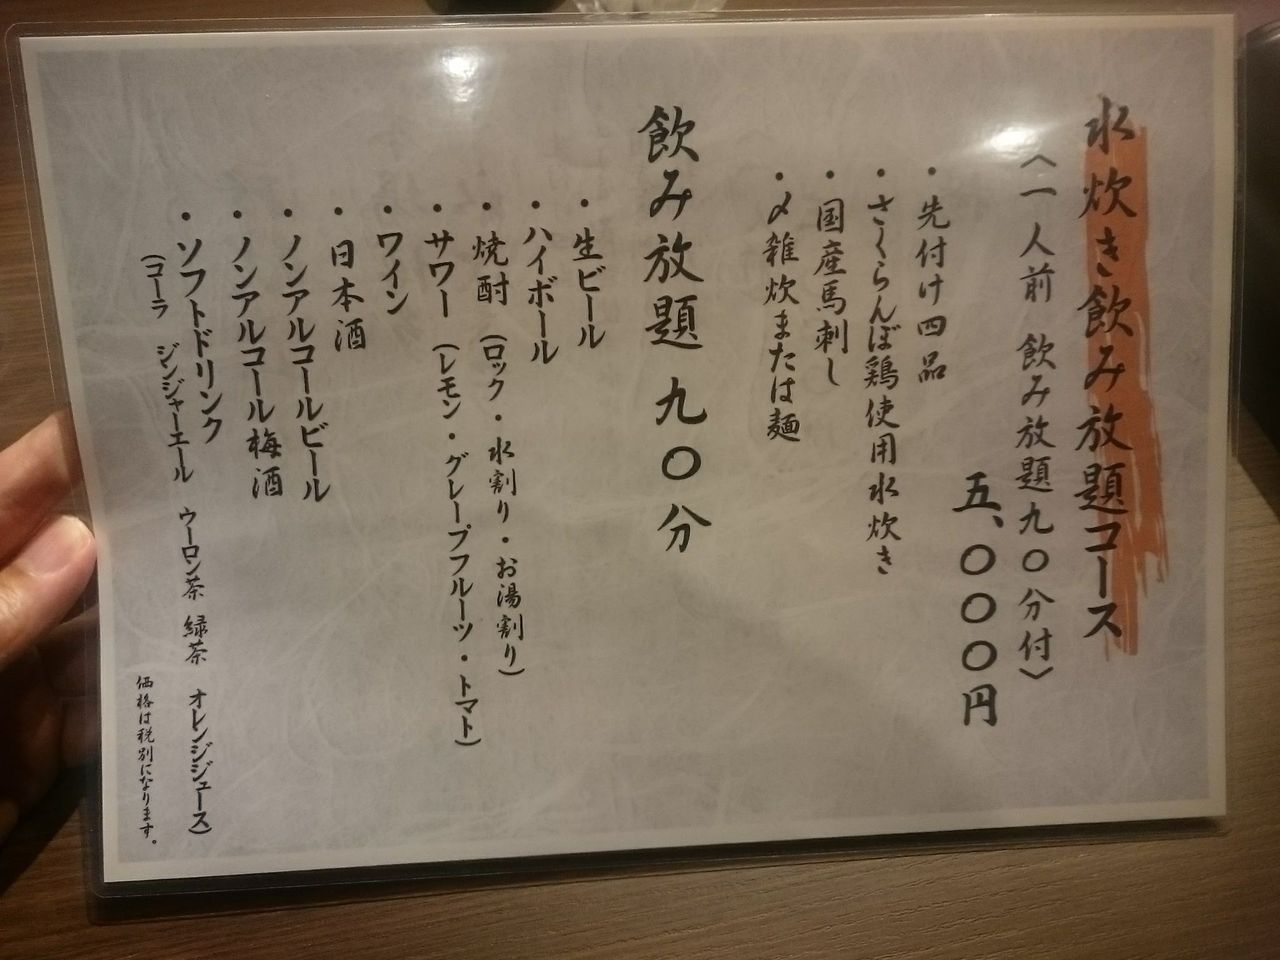 水炊き飲み放題コース
〈一人前 飲み放題九〇分付〉
五、〇〇〇円
・先付け四品
・さくらんぼ鶏使用水炊き
・国産馬刺し
・〆雑炊または麺
飲み放題 九〇分
・生ビール
・ハイボール
・焼酎 (ロック・水割り・お湯割り)
・サワー (レモン・グレープフルーツ・トマト)
・ワイン
・日本酒
・ノンアルコールビール
・ノンアルコール梅酒
・ソフトドリンク
(コーラ ジンジャーエール ウーロン茶 緑茶 オレンジジュース)
価格は税別になります。